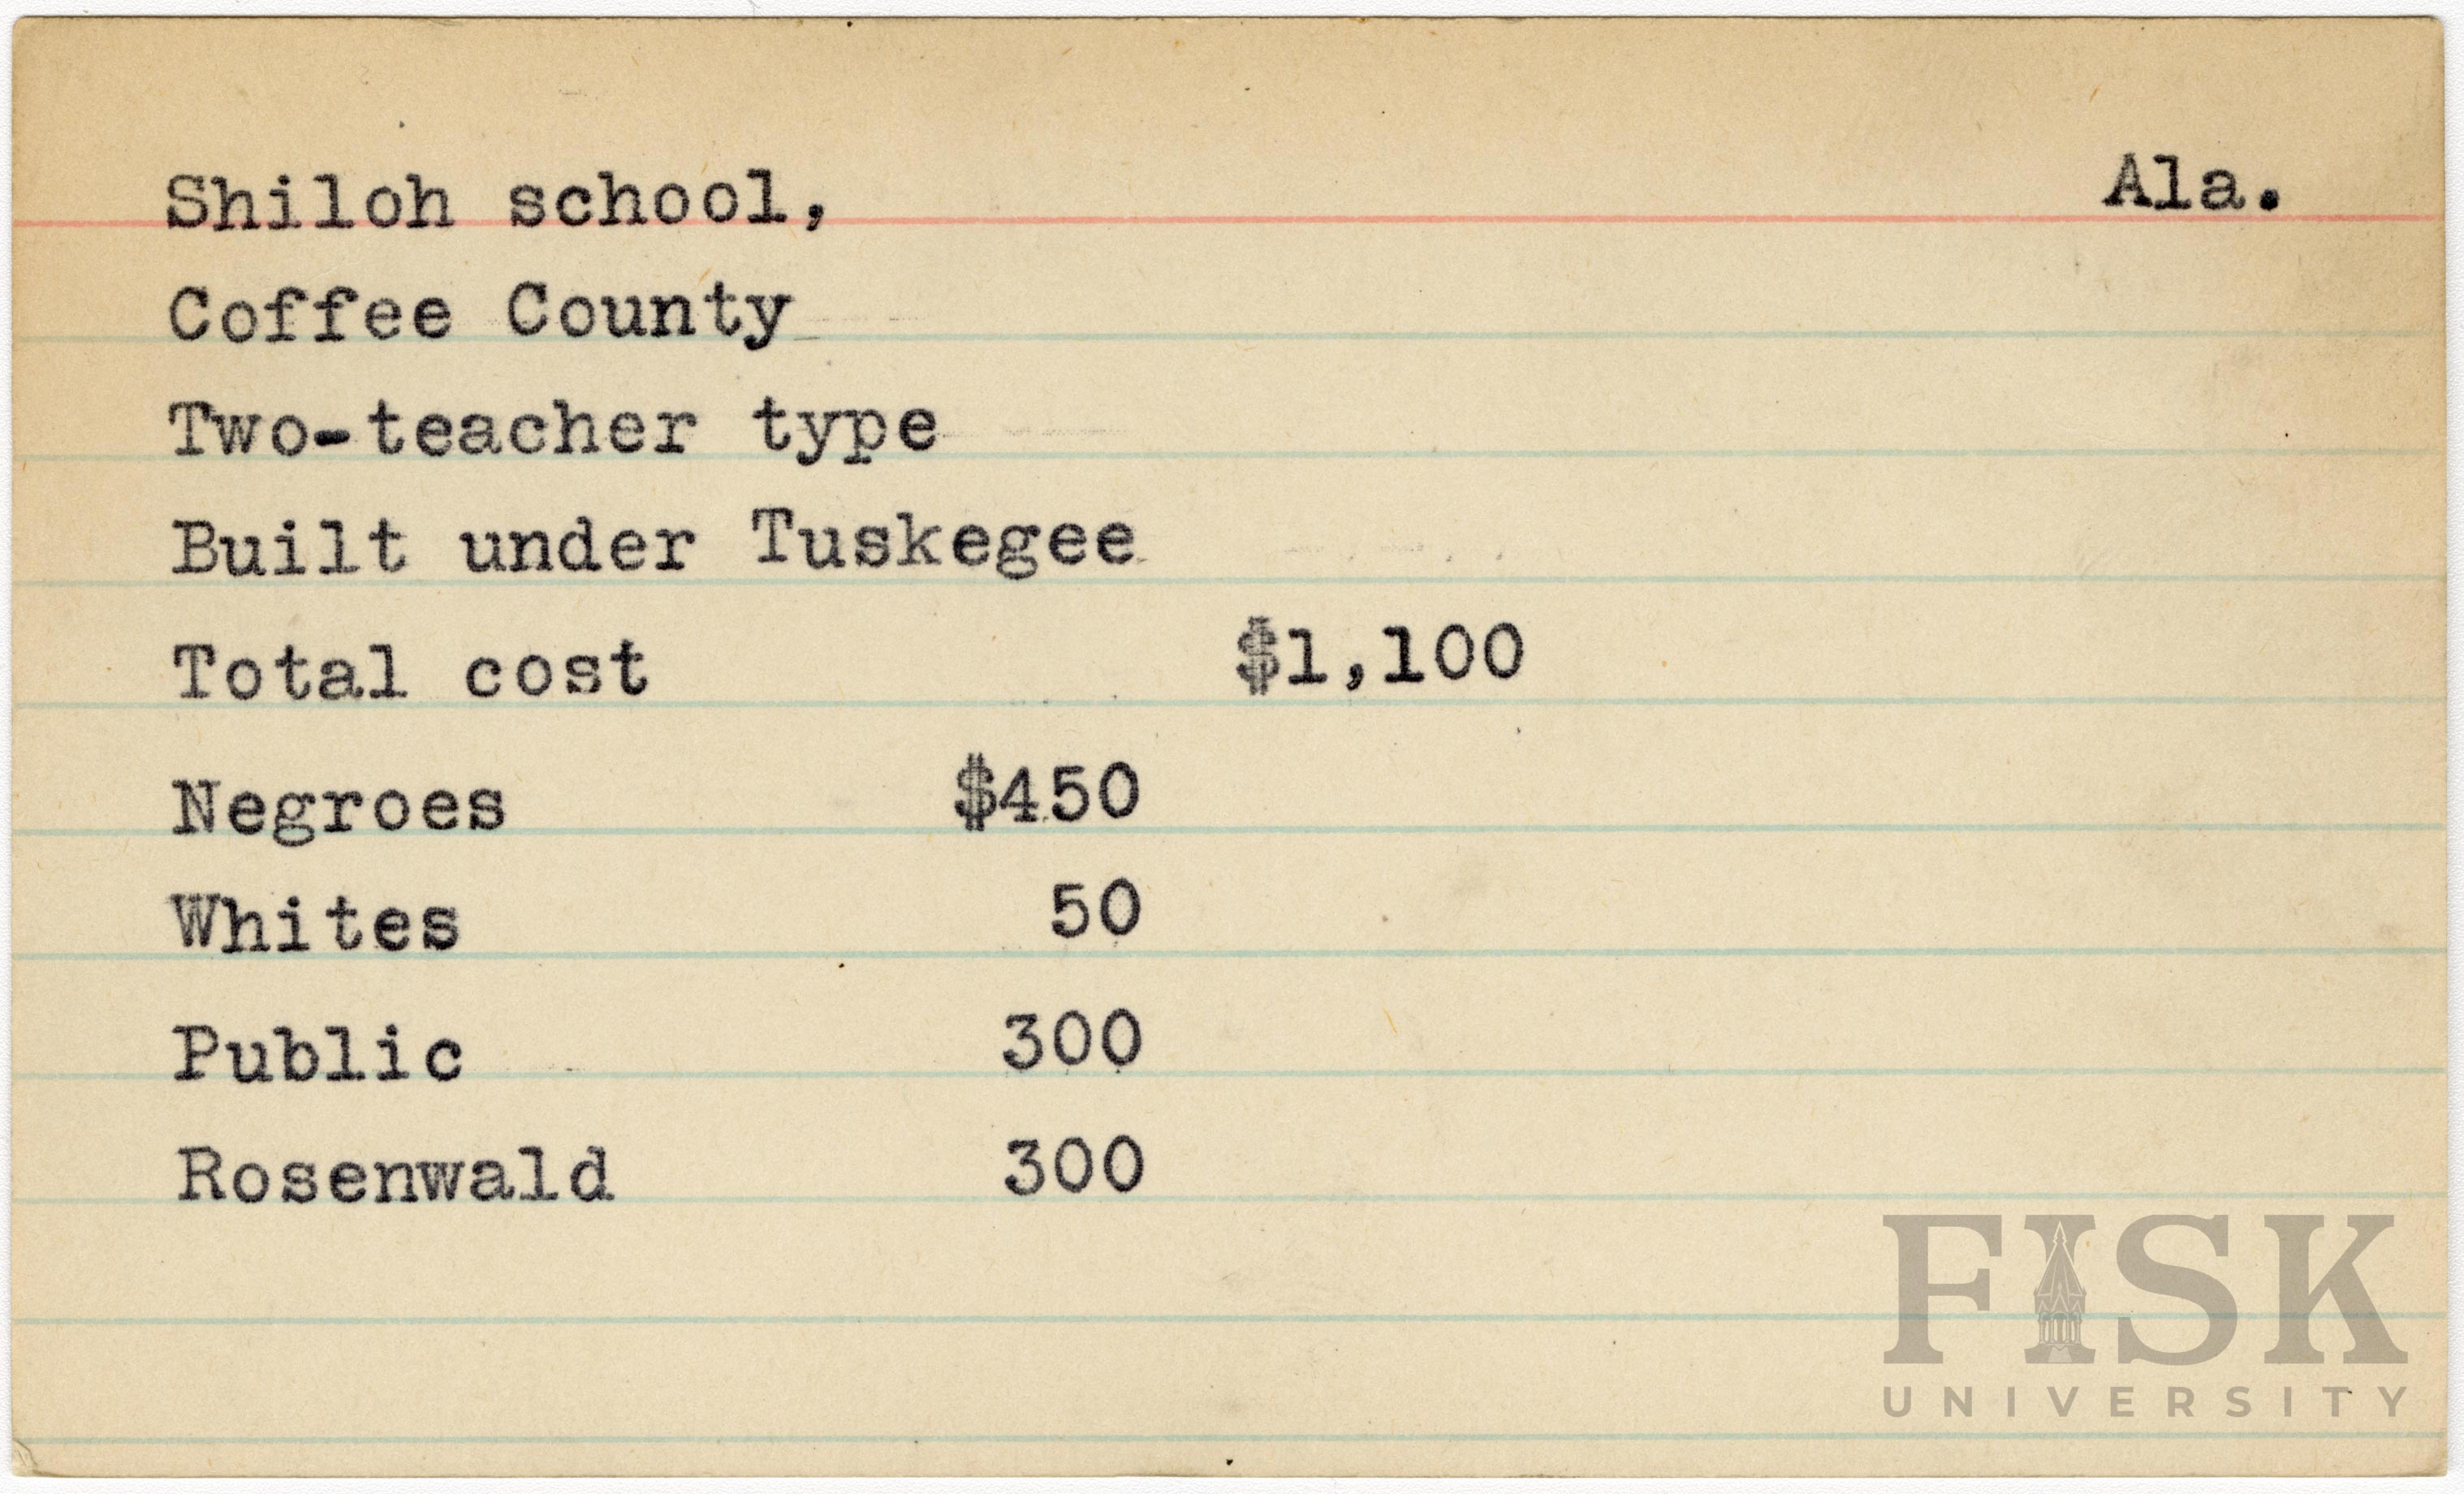 Shiloh school, Ala.
Coffee County
Two-teacher type
Built under Tuskegee
Total cost $1,100
Negroes $450
Whites 50
Public 300
Rosenwald 300
FISK
UNIVERSITY